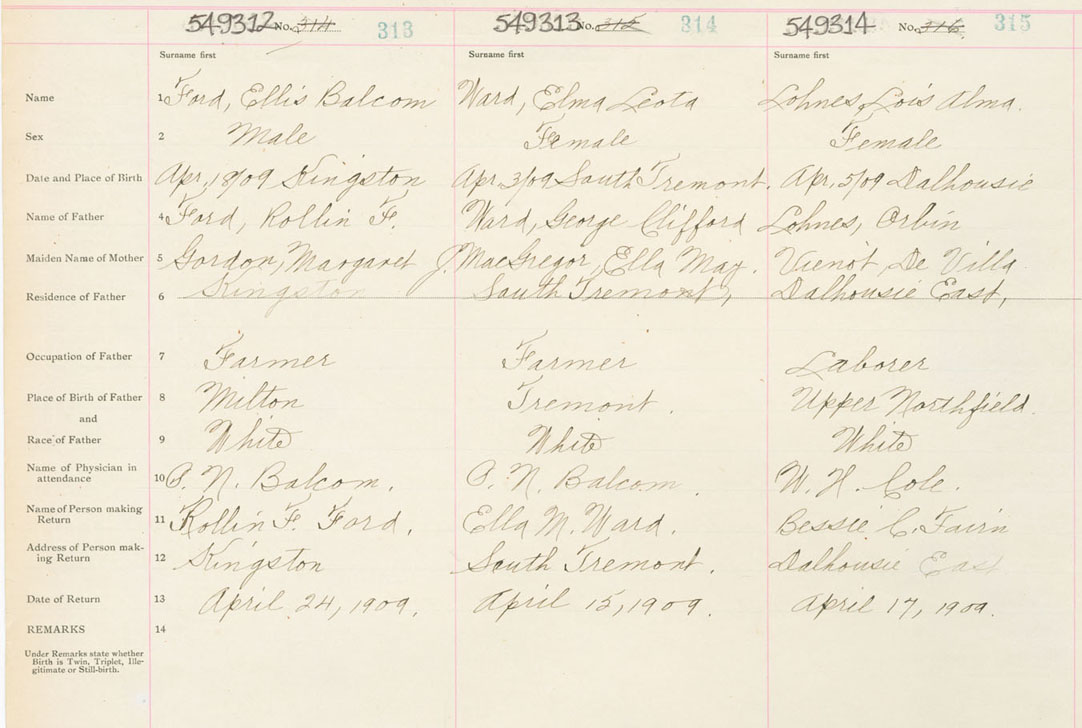 549312 No. 314 313 549313 No. 315 314 549314 No. 316 315
Surname first Surname first Surname first
Name 1 Ford, Ellis Balcom Ward, Elma Leota Lohnes, Lois Alma.
Sex 2 Male Female Female
Date and Place of Birth Apr, 18/09 Kingston Apr. 3/09 South Tremont. Apr, 5/09 Dalhousie
Name of Father 4 Ford, Rollin F. Ward, George Clifford Lohnes, Orbin
Maiden Name of Mother 5 Gordon, Margaret J. MacGregor, Ella May. Vienot De Villa
Residence of Father 6 Kingston South Tremont, Dalhousie East,
Occupation of Father 7 Farmer Farmer Laborer
Place of Birth of Father 8 Milton Tremont. Upper Northfield.
and
Race of Father 9 White White White
Name of Physician in
attendance 10 N. Balcom. N. Balcom. W. H. Cole.
Name of Person making
Return 11 Rollin F. Ford. Ella M. Ward. Bessie C. Fairn
Address of Person mak-
ing Return 12 Kingston South Tremont. Dalhousie East
Date of Return 13 April 24, 1909. April 15, 1909. April 17, 1909.
REMARKS 14
Under Remarks state whether
Birth is Twin, Triplet, Ille-
gitimate or Still-birth.